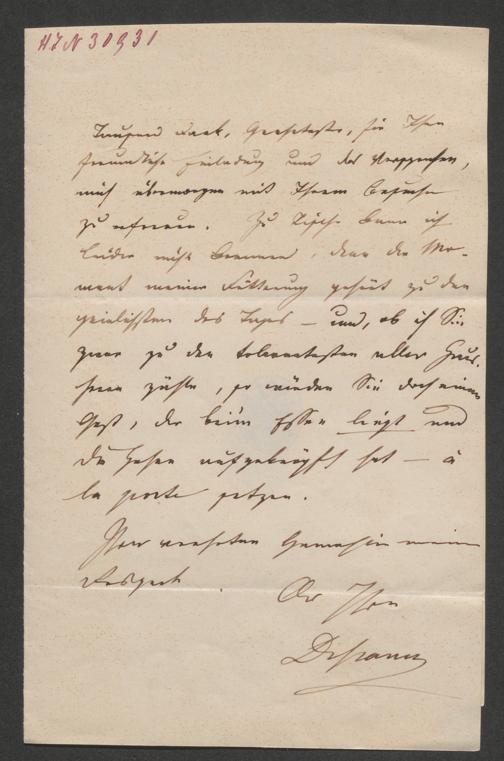 HIN 30931
Tausend Dank, Geehrtester, für Ihre
freundliche Einladung und das Versprechen,
mich übermorgen mit Ihrem Besuche
zu erfreuen. Zu Tische kann ich
leider nicht kommen, denn der Mo-
ment meiner Fütterung gehört zu den
peinlichsten des Tages – und, ob ich Sie
zwar zu den tolerantesten aller Haus-
herren zähle, so würden Sie doch einen
Gast, der beim Essen liegt und
die Hosen aufgeknöpft hat – à
la porte setzen.
Ihrer verehrten Gemahlin meinen
Respekt.
Der Ihre